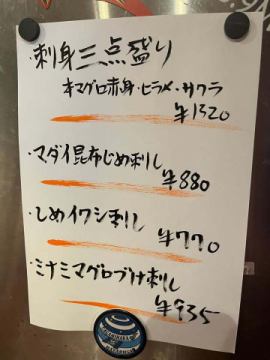 ・刺身三点盛り
本マグロ赤身・ヒラメ・サワラ
¥1320
・マダイ昆布じめ刺し
¥880
・しめイワシ刺し
¥770
・ミナミマグロづけ刺し
¥935